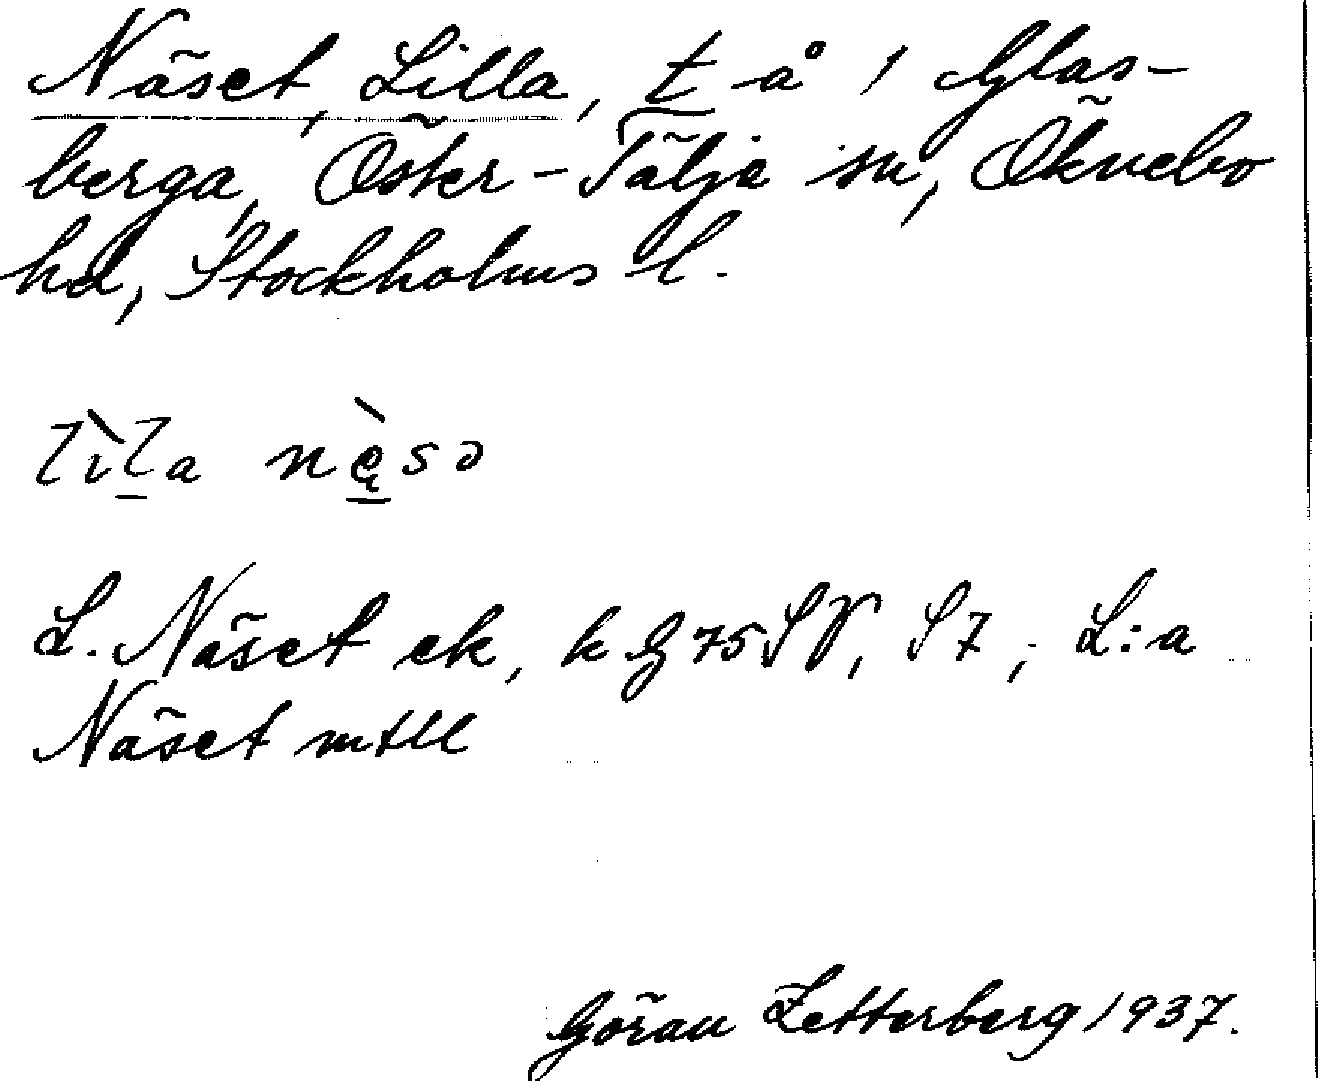 Näset, Lilla, t å 1 Glas-
berga, Öster-Tälje sn, Öknebo
hd, Stockholms l.
lìla nę̀sə
L. Näset ek, k G 75 SV, S 7, L:a
Näset mtll
Göran Zetterberg 1937.